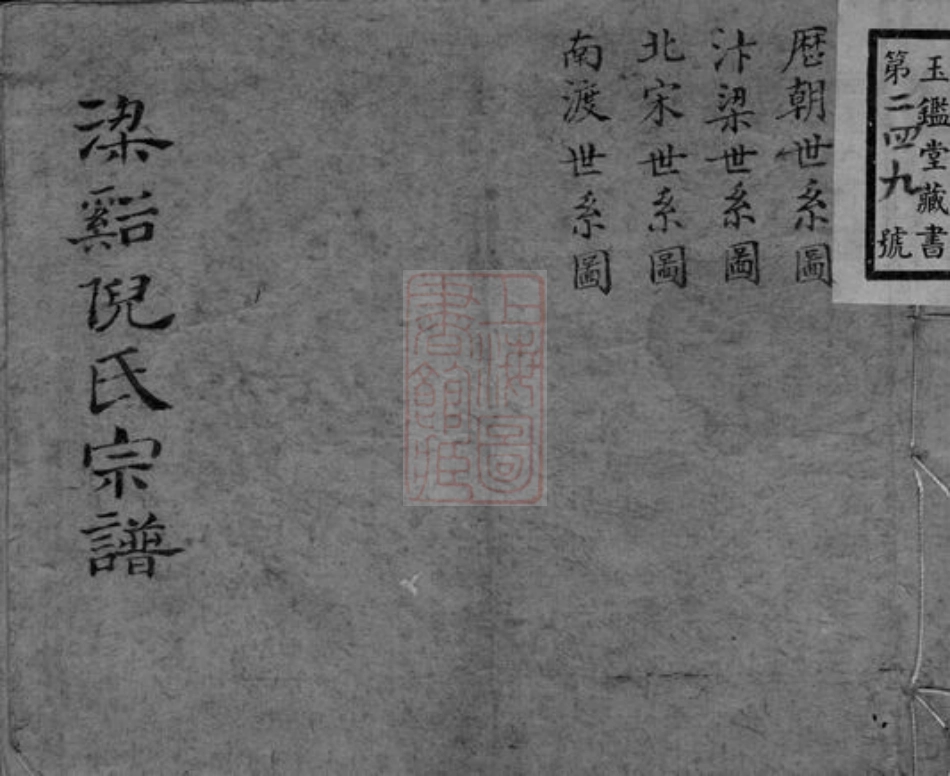 玉鑑堂藏書
第二四九號
歷朝世系圖
汴梁世系圖
北宋世系圖
南渡世系圖
梁谿倪氏宗譜
上海圖
書館藏